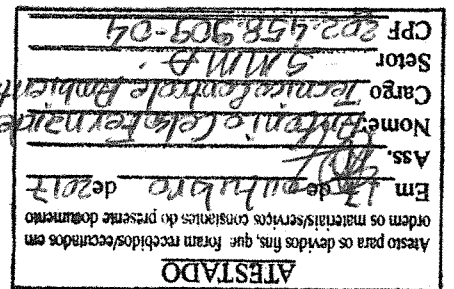 ATESTADO
Atesto para os devidos fins, que foram recebidos/executados em
ordem os materiais/serviços constantes do presente documento
Em 17 de outubro de 2017
Ass.
Nome Antonio Celso Fernande
Cargo Tecnico Controle Ambient
Setor SMMA.
CPF 202.458.909-04